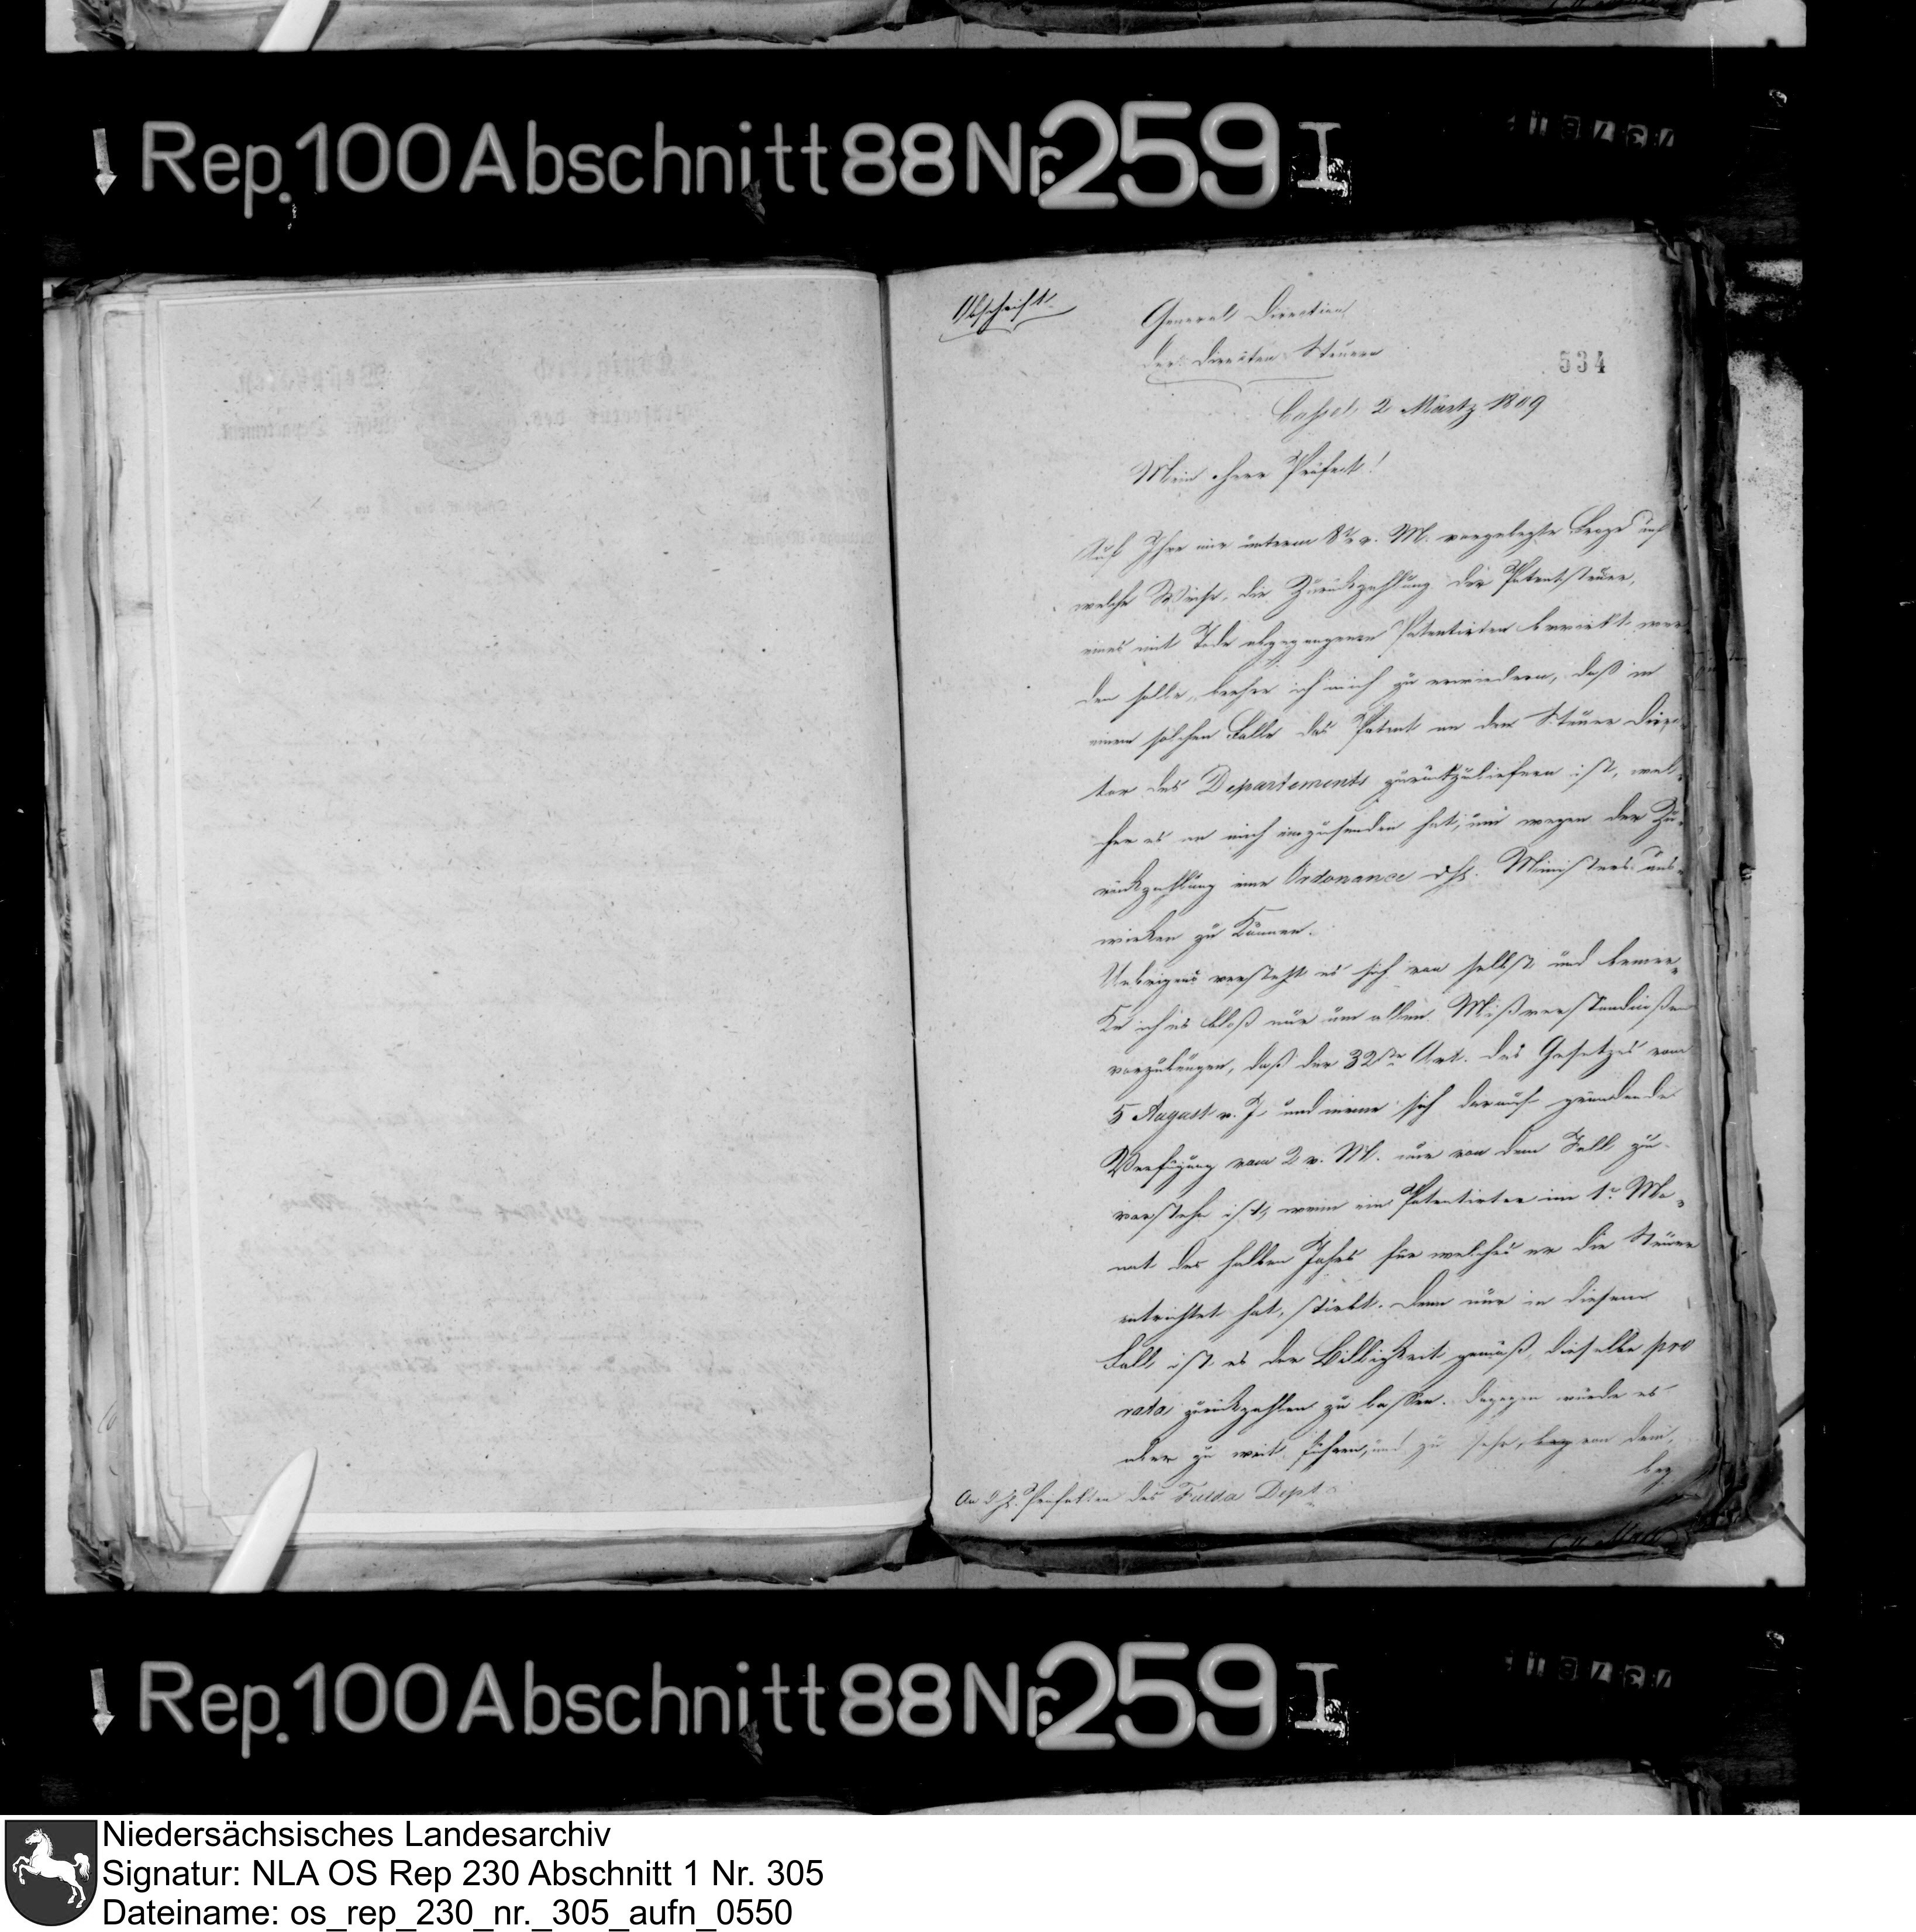 Rep. 100 Abschnitt 88 Nr. 259 I
Abschrift
General Direction
der directen Steuern
534
Cassel, 2 Märtz 1809
Mein Herr Präfect!
Auf Ihre mir unterm 8t. v. M. vorgelegte Frage auf
welche Weise, die Zurückzahlung der Patentsteuer,
eines mit Tode abgegangenen Patentirten bewirkt wer
den solle, beehre ich mich zu erwiedern, daß in
einem solchen Falle das Patent an den Steuer Direc-
tor des Departements zurückzuliefern ist, wel-
cher es an mich einzusenden hat, um wegen der Zu-
rückzahlung eine Ordonance des Ministers aus-
wirken zu können.
Uebrigens versteht es sich von selbst und bemer-
ke ich es bloß nur um allen Mißverständnißen
vorzubeugen, daß der 32ste Art. des Gesetzes vom
5 August v. J. und meine sich darauf gründende
Verfügung vom 2 v. M. nur von dem Fall zu
verstehn ist, wenn ein Patentirter im 1t. Mo-
nat des halben Jahrs für welches er die Steuer
entrichtet hat, stirbt. Denn nur in diesem
Fall ist es der Billigkeit gemäß, dieselbe pro
rata zurückzahlen zu lassen. Dagegen würde es
aber zu weit führen, und zu sehr, von den,
bey
An d. H. Präfekten des Fulda Dept.
Rep. 100 Abschnitt 88 Nr. 259 I
Niedersächsisches Landesarchiv
Signatur: NLA OS Rep 230 Abschnitt 1 Nr. 305
Dateiname: os_rep_230_nr._305_aufn_0550